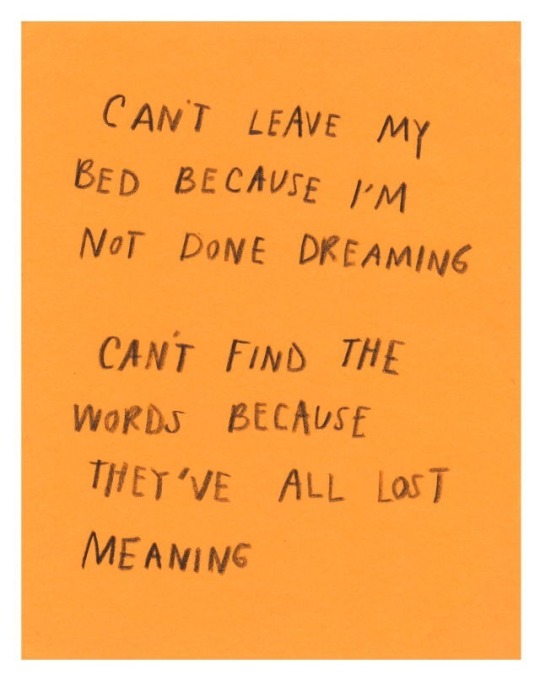 CAN'T LEAVE MY
BED BECAUSE I'M
NOT DONE DREAMING
CAN'T FIND THE
WORDS BECAUSE
THEY'VE ALL LOST
MEANING